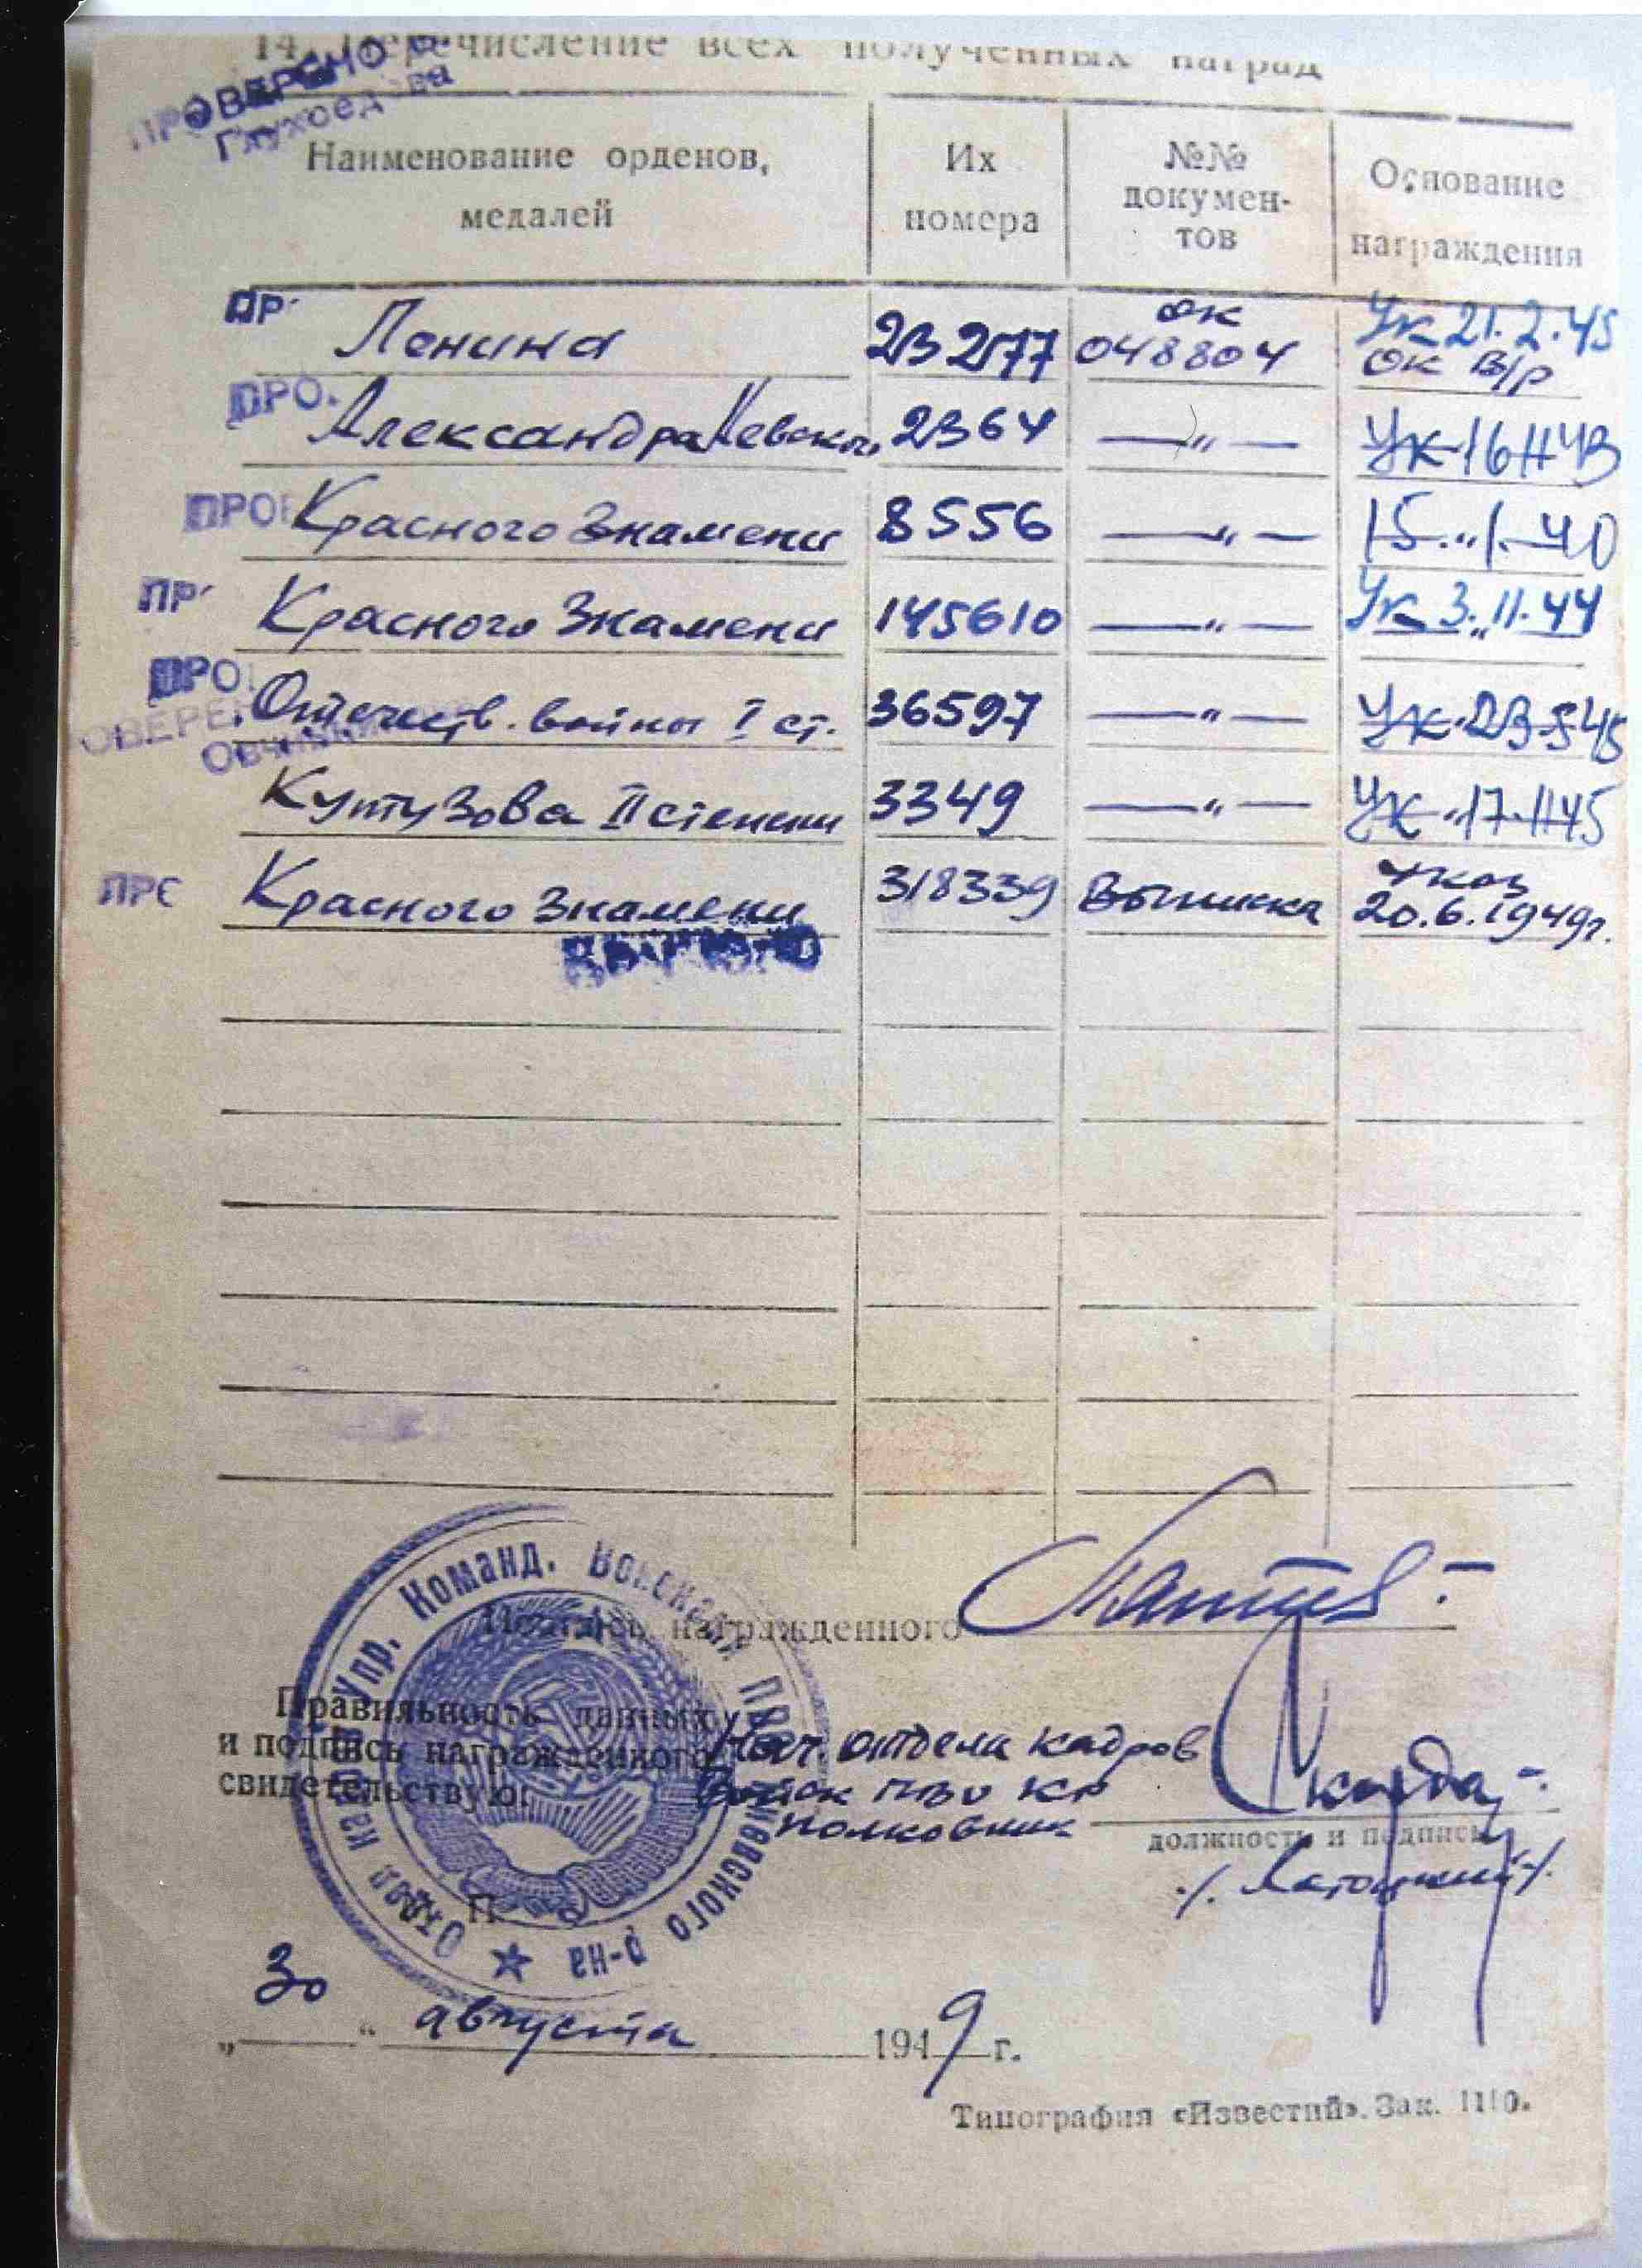 14. Перечисление всех полученных наград
ПРОВЕРЕНО
Глухоедова
Наименование орденов, медалей
Их номера
№№ докумен-тов
Основание награждения
ПР Ленина 232577 ок 048804 Ук 21.2.45 ок в/р
ПРО. Александра Невского 2364 —„— Ук 16 II 43
ПРО Красного Знамени 8556 —„— 15.„1.40
ПР Красного Знамени 145610 —„— Ук 3.„11.44
ПРО Отечеств. войны I ст. 36597 —„— Ук 23.5 45
ОВЕРЕ
Кутузова II степени 3349 —„— Ук 17.II 45
ПРС Красного Знамени 318339 Выписка Указ 20.6.1949г.
Подпись награжденного
Отдел кадров Упр. Команд. Войсками ПВО р-на
Правильность данных
и подпись награжденного
свидетельствую:
Нач. отдела кадров
Войск ПВО
полковник
должность и подпись
П.
„30“ августа 1949 г.
Типография «Известий». Зак. 1110.